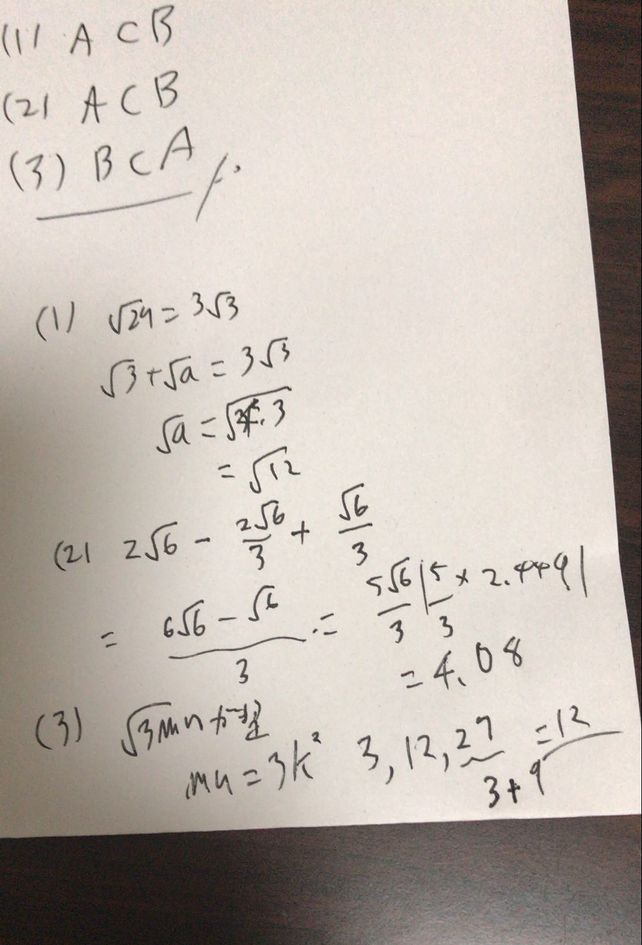 (1) A ⊂ B
(2) A ⊂ B
(3) B ⊂ A
(1) √27 = 3√3
√3 + √a = 3√3
√a = √4·3
= √12
(2) 2√6 - 2√6/3 + √6/3
= (6√6 - √6)/3 = 5√6/3 | 5/3 × 2.449 |
= 4.08
(3) √3mn
mn = 3k² 3, 12, 27 = 12
3 + 9